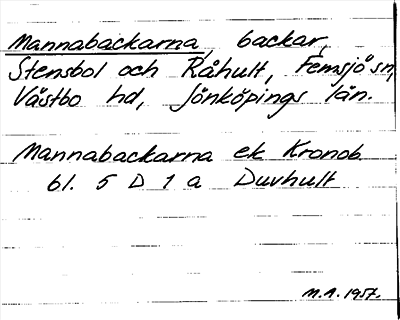 Mannabackarna, backar,
Stensbol och Råhult, Femsjö sn,
Västbo hd, Jönköpings län.
Mannabackarna ek Kronob.
bl. 5 D 1 a Duvhult
M.A. 1957.